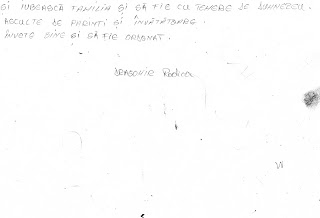 ȘI IUBEASCĂ FAMILIA ȘI SĂ FIE CU TEMERE DE DUMNEZEU.
ASCULTE DE PĂRINȚI ȘI ÎNVĂȚĂTOARE.
ÎNVEȚE BINE ȘI SĂ FIE ORDONAT.
DRAGONIE Rodica